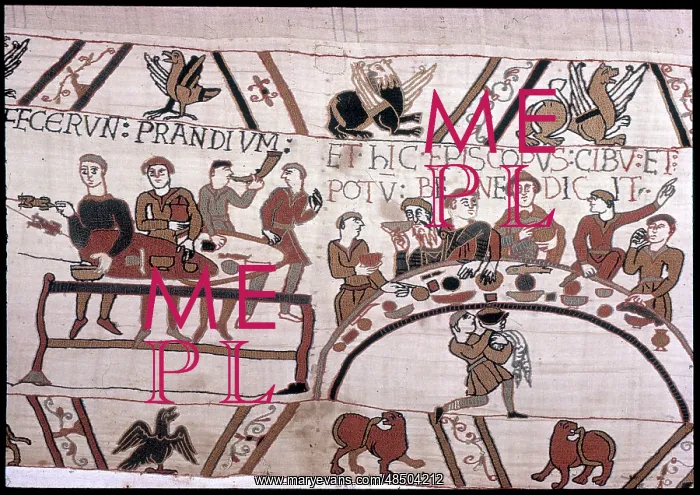 FECERVN: PRANDIVM:
ET hIC: EPISCOPVS: CIBV: ET:
POTV: BENEDICIT:
ME
PL
ME
PL
www.maryevans.com/48504212